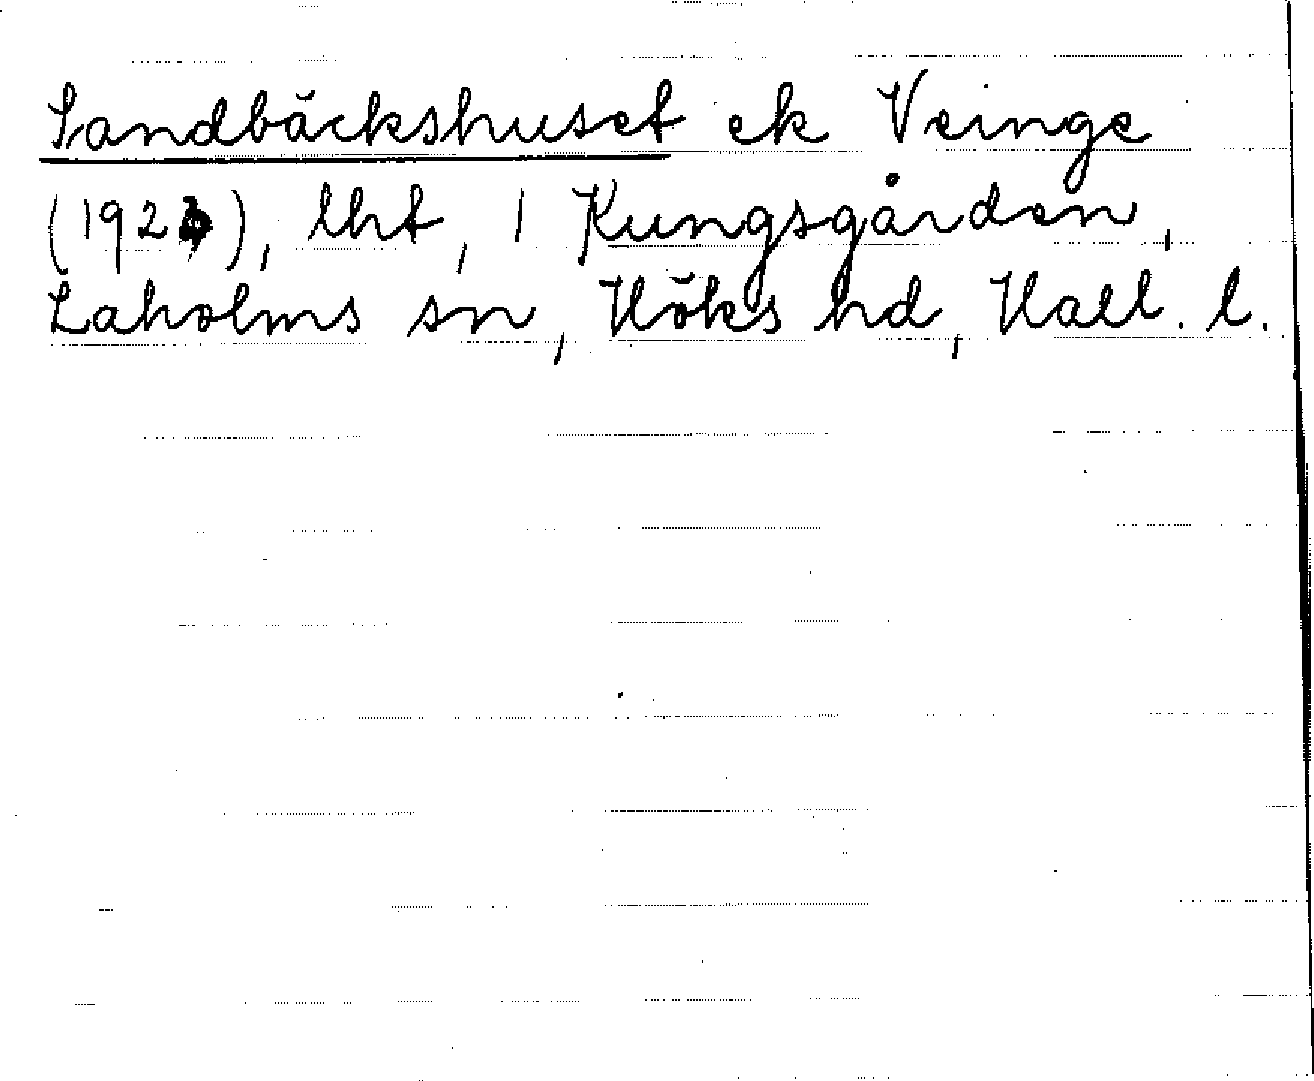 Sandbäckshuset ek Veinge
(1924), lht, 1 Kungsgården,
Laholms sn, Höks hd, Hall. l.